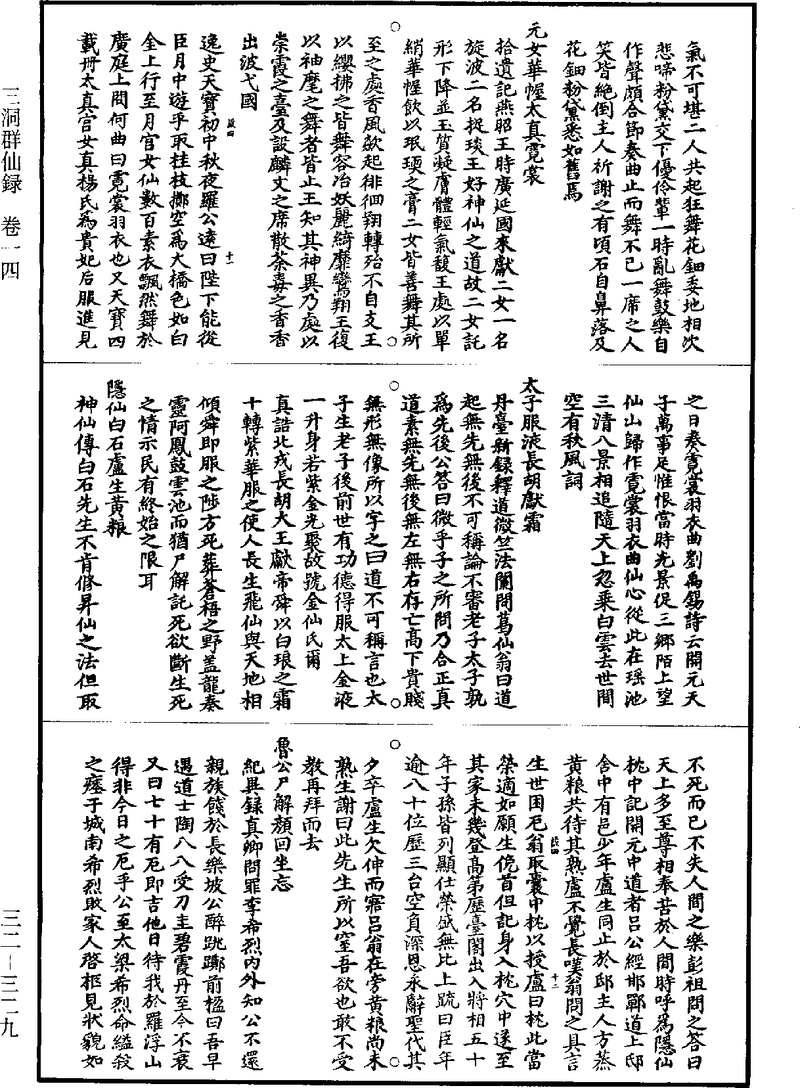 氣不可堪二人共起狂舞花鈿委地相次
悲啼粉黛交下優伶輩一時亂舞鼓樂自
作聲頗合節奏曲止而舞不已一席之人
笑皆絕倒主人祈謝之有頃石自鼻落及
花鈿粉黛悉如舊焉
元女華幄太真霓裳
拾遺記燕昭王時廣延國來獻二女一名
旋波二名提琰王好神仙之道故二女託
形下降並玉質凝膚體輕氣馥王處以單
綃華幄飲以珉瑛之膏二女皆善舞其所
至之處香風歘起徘徊翔轉殆不自支王
以纓拂之皆舞容冶妖麗綺靡鸞翔王復
以袖麾之舞者皆止王知其神異乃處以
崇霞之臺及設麟文之席散荼蕪之香香
出波弋國
逸史天寶初中秋夜羅公遠曰陛下能從
臣月中遊乎取桂枝擲空為大橋色如白
金上行至月宮女仙數百素衣飄然舞於
廣庭上問何曲曰霓裳羽衣也又天寶四
載冊太真宮女真楊氏為貴妃后服進見
之日奏霓裳羽衣曲劉禹錫詩云開元天
子萬事足惟恨當時光景促三鄉陌上望
仙山歸作霓裳羽衣曲仙心從此在瑤池
三清八景相追隨天上忽乘白雲去世間
空有秋風詞
太子服液長胡獻霜
丹臺新錄釋道微竺法蘭問葛仙翁曰道
起無先無後不可稱論不審老子太子孰
為先後公答曰微乎子之所問乃合正真
道素無先無後無左無右存亡高下貴賤
無形無像所以字之曰道不可稱言也太
子生老子後前世有功德得服太上金液
一升身若紫金光聚故號金仙氏爾
真誥北戎長胡大王獻帝舜以白琅之霜
十轉紫華服之使人長生飛仙與天地相
傾舜即服之陟方死葬蒼梧之野蓋龍奏
靈阿鳳鼓雲池而猶尸解託死欲斷生死
之情示民有終始之限耳
隱仙白石盧生黃粮
神仙傳白石先生不肯修昇仙之法但取
不死而已不失人間之樂彭祖問之答曰
天上多至尊相奉苦於人間時呼為隱仙
枕中記開元中道者呂公經邯鄲道上邸
舍中有邑少年盧生同止於邸主人方蒸
黃粮共待其熟盧不覺長嘆翁問之具言
生世困厄翁取囊中枕以授盧曰枕此當
榮適如願生俛首但記身入枕穴中遂至
其家未幾登高第歷臺閣出入將相五十
年子孫皆列顯仕榮盛無比上疏曰臣年
逾八十位歷三台空負深恩永辭聖代其
夕卒盧生欠伸而寤呂翁在旁黃粮尚未
熟生謝曰此先生所以窒吾欲也敢不受
教再拜而去
魯公尸解顏回坐忘
紀異錄真卿問罪李希烈內外知公不還
親族餞於長樂坡公醉跳躑前楹曰吾早
遇道士陶八八受刀圭碧霞丹至今不衰
又曰七十有厄即吉他日待我於羅浮山
得非今日之厄乎公至大梁希烈命縊殺
之瘞于城南希烈敗家人啓柩見狀貌如
三洞群仙録 卷一四
三二—三二九